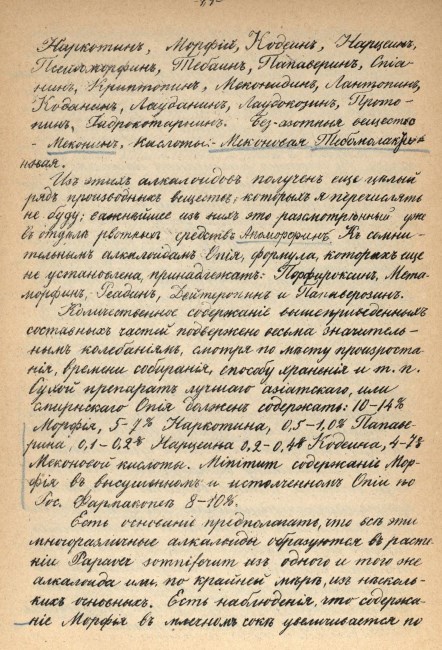 Наркотинъ, Морфій, Кодеинъ, Нарцеинъ,
Псейдоморфинъ, Тебаинъ, Папаверинъ, Опіа-
нинъ, Криптопинъ, Меконидинъ, Лантопинъ,
Кодаминъ, Лауданинъ, Лаудонозинъ, Прото-
пинъ, Гидрокотарнинъ. Без-азотныя вещества
- Меконинъ, кислоты: - Меконовая
новая.
Изъ этихъ алкалоидовъ полученъ еще целый
рядъ производныхъ веществъ, которыхъ я перечислять
не буду; важнѣйшее изъ нихъ это разсмотрѣнный уже
въ отдѣлѣ рвотныхъ средствъ Апоморфинъ. Къ сомни-
тельнымъ алкалоидамъ Опія, формула, которыхъ еще
не установлена, принадлежатъ: Порфироксинъ, Мета-
морфинъ, Реадинъ, Дейтеропинъ и Папаверозинъ.
Количественное содержаніе вышеприведенныхъ
составныхъ частей подвержено весьма значитель-
нымъ колебаніямъ, смотря по мѣсту произроста-
нія, времени собиранія, способу храненія и т. п.
Сухой препаратъ лучшаго азіатскаго, или
смирнскаго Опія долженъ содержать: 10-14%
Морфія, 5-7% Наркотина, 0,5-1,0% Папаве-
рина, 0,1-0,2% Нарцеина 0,2-0,4% Кодеина, 4-7%
Меконовой кислоты. Minimum содержаній Мор-
фія въ высушенномъ и истолченномъ Опіи по
Рос. Фармакопеѣ 8-10%.
Есть основаніе предполагать, что всѣ эти
многоразличные алкалоиды образуются въ расте-
ніи Papaver somniferum изъ одного и того же
алкалоида или, по крайней мѣрѣ, изъ нѣсколь-
кихъ основныхъ. Есть наблюденія, что содержа-
ніе Морфія въ млечномъ сокѣ увеличивается по